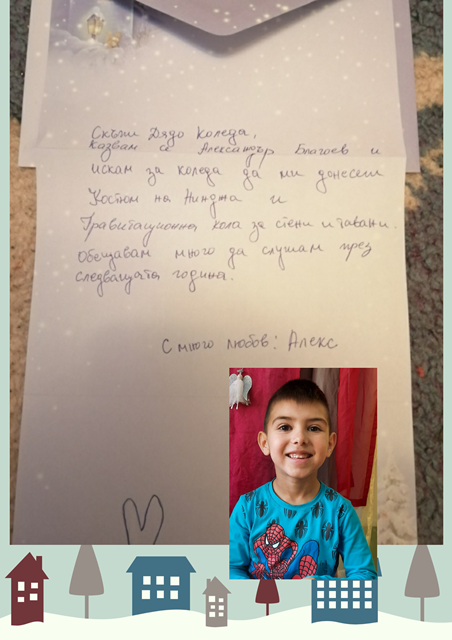 Скъпи Дядо Коледа,
казвам се Александър Благоев и
искам за коледа да ми донесеш
Костюм на Нинджа и
Гравитационна кола за стени и тавани.
Обещавам много да слушам през
следващата година.
С много любов: Алекс